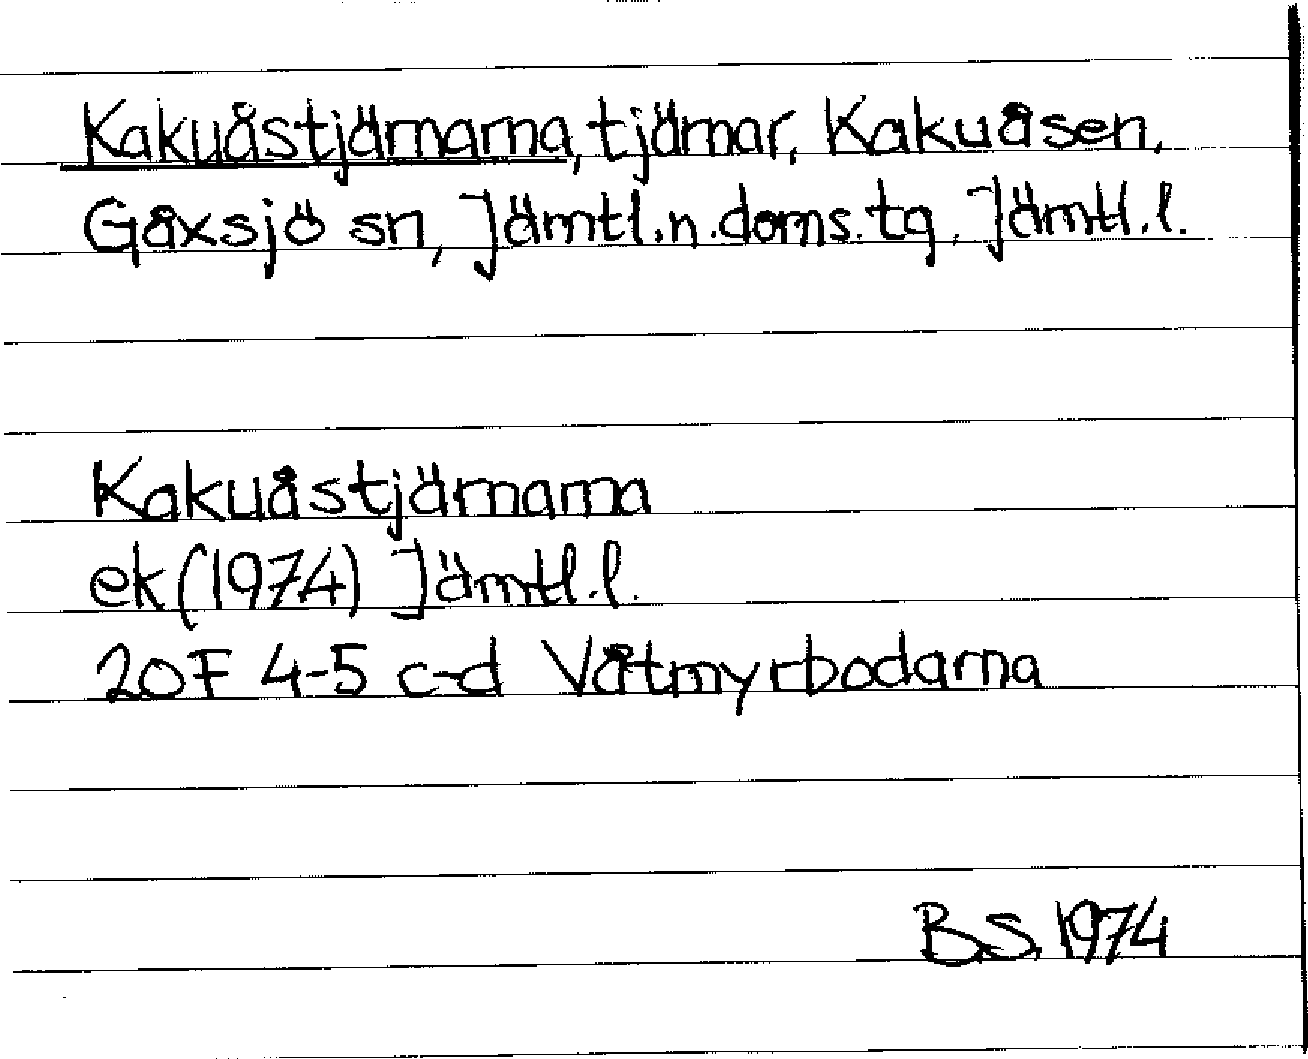 Kakuåstjärnarna, tjärnar, Kakuåsen,
Gåxsjö sn, Jämtl.n.doms.tg, Jämtl.l.
Kakuåstjärnarna
ek(1974) Jämtl.l.
20F 4-5 c-d Våtmyrbodarna
B.S. 1974